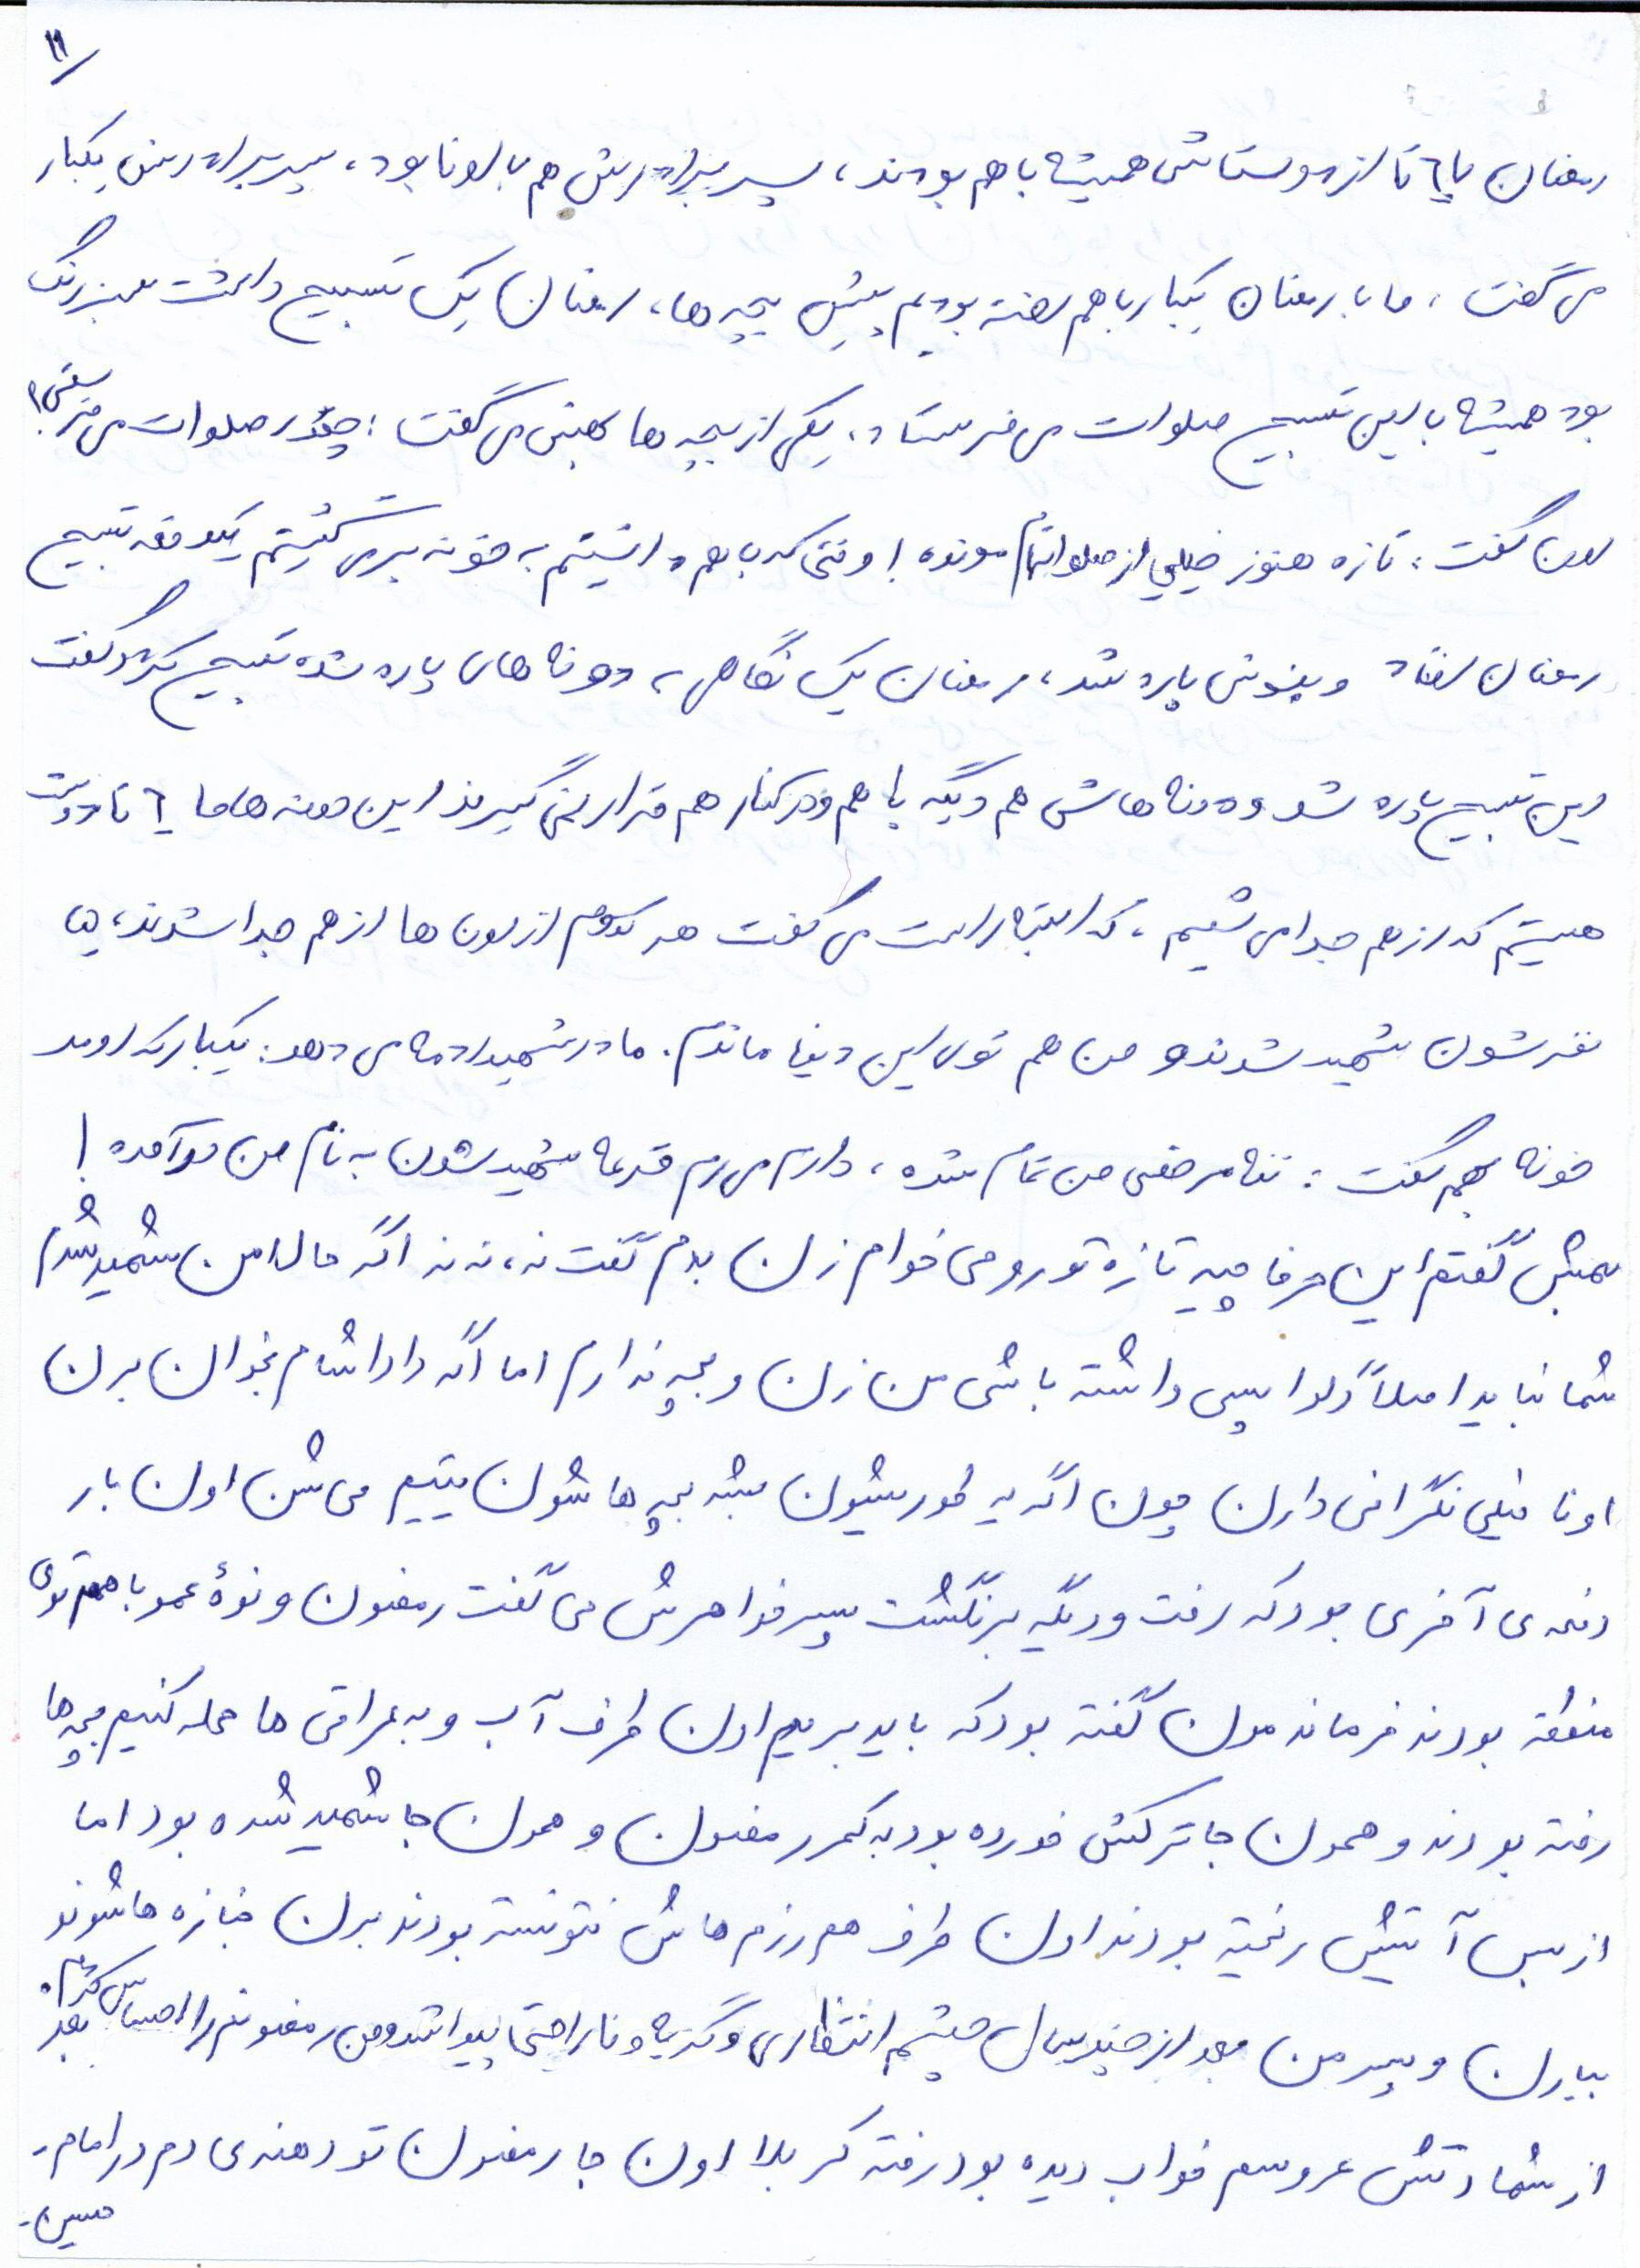 ۱۱
رمضان با ٦ تا از دوستاش همیشه با هم بودند، پسر برادرش هم با اونا بود، پسر برادرش یکبار
می گفت: ما با رمضان یکبار با هم رفته بودیم پیش بچه ها، رمضان یک تسبیح داشت سبز رنگ
بود همیشه با این تسبیح صلوات می فرستاد، یکی از بچه ها بهش می گفت: چقدر صلوات می فرستی؟
اون گفت: تازه هنوز خیلی از صلواتام مونده! وقتی که با هم داشتیم به خونه برمی گشتیم یکدفعه تسبیح
رمضان افتاد و بندش پاره شد، رمضان یک نگاهی به دونه های پاره شده تسبیح کرد و گفت
این تسبیح پاره شد و دونه هاش هم دیگه با هم و در کنار هم قرار نمی گیرند این دونه ها ما ٦ تا دوست
هستیم که از هم جدا می شیم، که البته راست می گفت هر کدوم از اون ها از هم جدا شدند،
نفرشون شهید شدند و من هم توی این دنیا ماندم. مادر شهید ادامه می دهد: یکبار که اومد
خونه بهم گفت: ننه مرخصی من تمام شده، دارم می رم قرعه شهید شدن به نام من درآمده!
بهش گفتم این حرفا چیه تازه تو رو می خوام زن بدم گفت نه، نه نه اگه حالا من شهید شدم
شما نباید اصلاً دلواپسی داشته باشی من زن و بچه ندارم اما اگه داداشام بخوان برن
اونا خیلی نگرانی دارن چون اگه یه طوریشون بشه بچه هاشون یتیم می شن اون بار
دفعه ی آخری بود که رفت و دیگه برنگشت پسر خواهرش می گفت رمضون و نوۀ عمو با هم توی
منطقه بودند فرماندمون گفته بود که باید بریم اون طرف آب و به عراقی ها حمله کنیم بچه ها
رفته بودند و همون جا ترکش خورده بود به کمر رمضون و همون جا شهید شده بود اما
از بس آتیش ریخته بودند اون طرف هم رزم هاش نتونسته بودند برن جنازه هاشونو
بیارن و پسر من بعد از چند سال چشم انتظاری و گریه و ناراحتی پیدا شد و من رمضونم را احساس کردم. بعد
از شهادتش عروسم خواب دیده بود رفته کربلا اون جا رمضون تو دهنه ی دم در امام-
حسین-